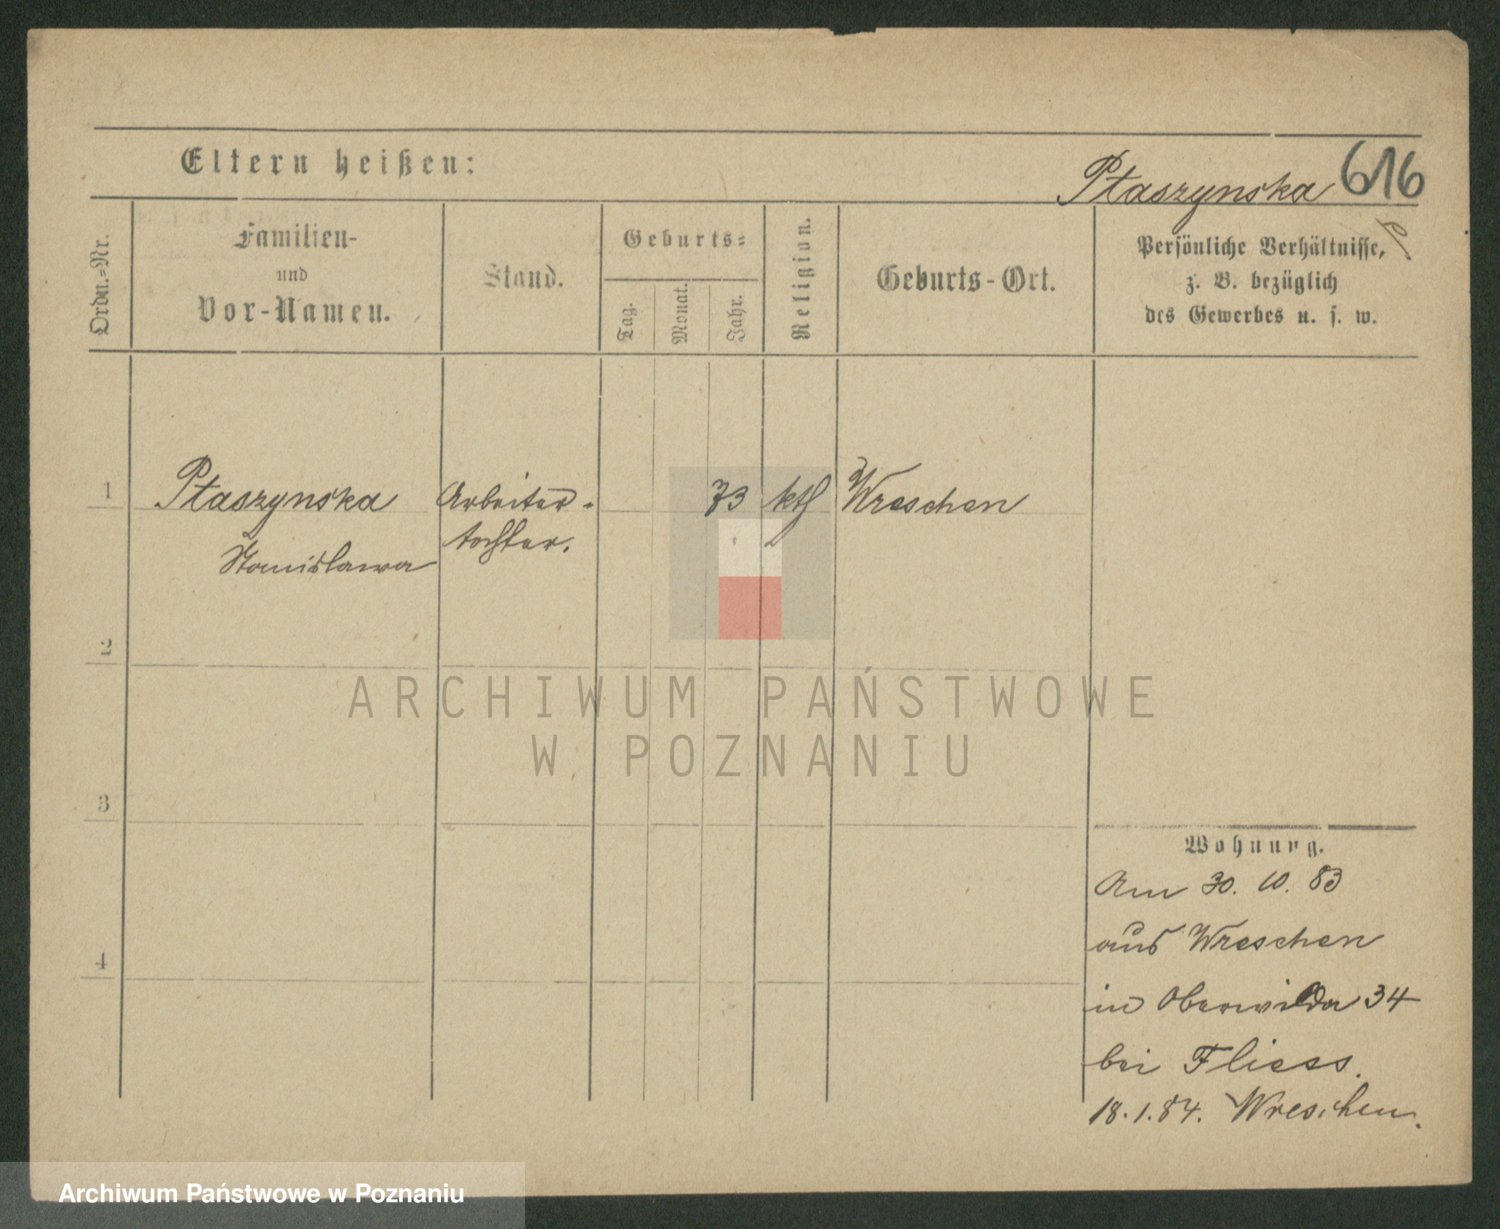 Eltern heißen:
Ptaszynska 616
Ordn.=Nr.
Familien-
und
Vor-Namen.
Stand.
Geburts=
Tag.
Monat.
Jahr.
Religion.
Geburts-Ort.
Persönliche Verhältnisse,
z. B. bezüglich
des Gewerbes u. s. w.
1 Ptaszynska Arbeiter- 73 kth Wreschen
Stanislawa tochter.
2
3
4
Wohnung.
Am 30. 10. 83
aus Wreschen
in Oberwilda 34
bei Fliess.
18.1.84. Wreschen.
ARCHIWUM PAŃSTWOWE
W POZNANIU
Archiwum Państwowe w Poznaniu